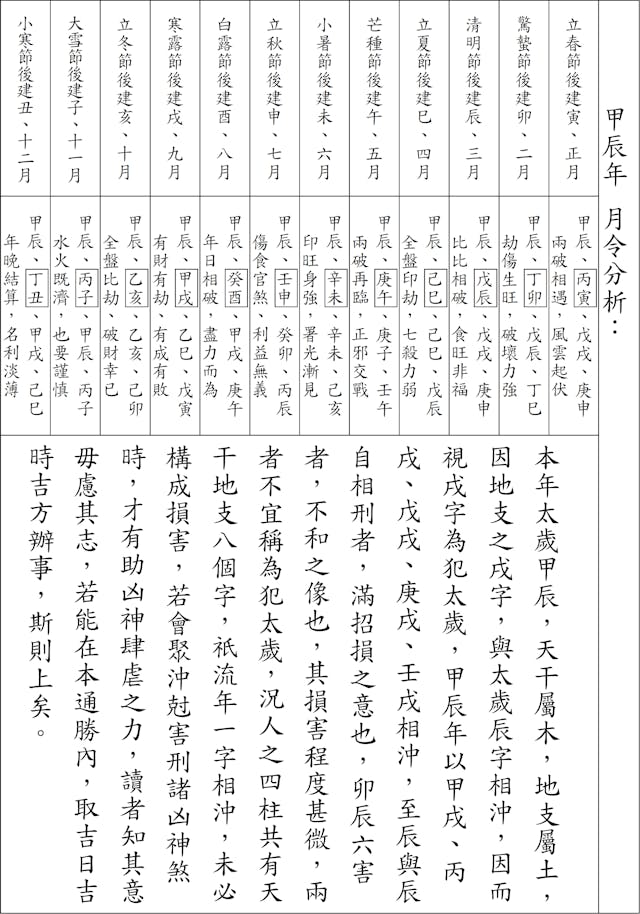 甲辰年 月令分析：
立春節後建寅、正月
甲辰、丙寅、戊戌、庚申
兩破相遇，風雲起伏
驚蟄節後建卯、二月
甲辰、丁卯、戊辰、丁巳
劫傷生旺，破壞力強
清明節後建辰、三月
甲辰、戊辰、戊戌、庚申
比比相破，食旺非福
立夏節後建巳、四月
甲辰、己巳、己巳、戊辰
全盤印劫，七殺力弱
芒種節後建午、五月
甲辰、庚午、庚子、壬午
兩破再臨，正邪交戰
小暑節後建未、六月
甲辰、辛未、辛未、己亥
印旺身強，署光漸見
立秋節後建申、七月
甲辰、壬申、癸卯、丙辰
傷食官煞，利益無義
白露節後建酉、八月
甲辰、癸酉、甲戌、庚午
年日相破，盡力而為
寒露節後建戌、九月
甲辰、甲戌、乙巳、戊寅
有財有劫，有成有敗
立冬節後建亥、十月
甲辰、乙亥、乙亥、己卯
全盤比劫，破財幸已
大雪節後建子、十一月
甲辰、丙子、甲辰、丙子
水火既濟，也要謹慎
小寒節後建丑、十二月
甲辰、丁丑、甲戌、己巳
年晚結算，名利淡薄
本年太歲甲辰，天干屬木，地支屬土，
因地支之戌字，與太歲辰字相沖，因而
視戌字為犯太歲，甲辰年以甲戌、丙
戌、戊戌、庚戌、壬戌相沖，至辰與辰
自相刑者，滿招損之意也，卯辰六害
者，不和之像也，其損害程度甚微，兩
者不宜稱為犯太歲，況人之四柱共有天
干地支八個字，祇流年一字相沖，未必
構成損害，若會聚沖尅害刑諸凶神煞
時，才有助凶神肆虐之力，讀者知其意
毋慮其志，若能在本通勝內，取吉日吉
時吉方辦事，斯則上矣。